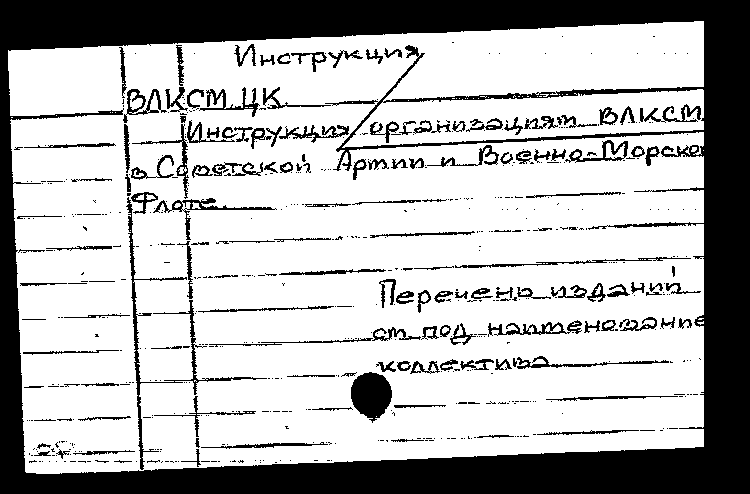 Инструкция
ВЛКСМ. ЦК.
Инструкция организациям ВЛКСМ
в Советской Армии и Военно-Морской
Флоте.
Перечень изданий
см. под наименование
коллектива